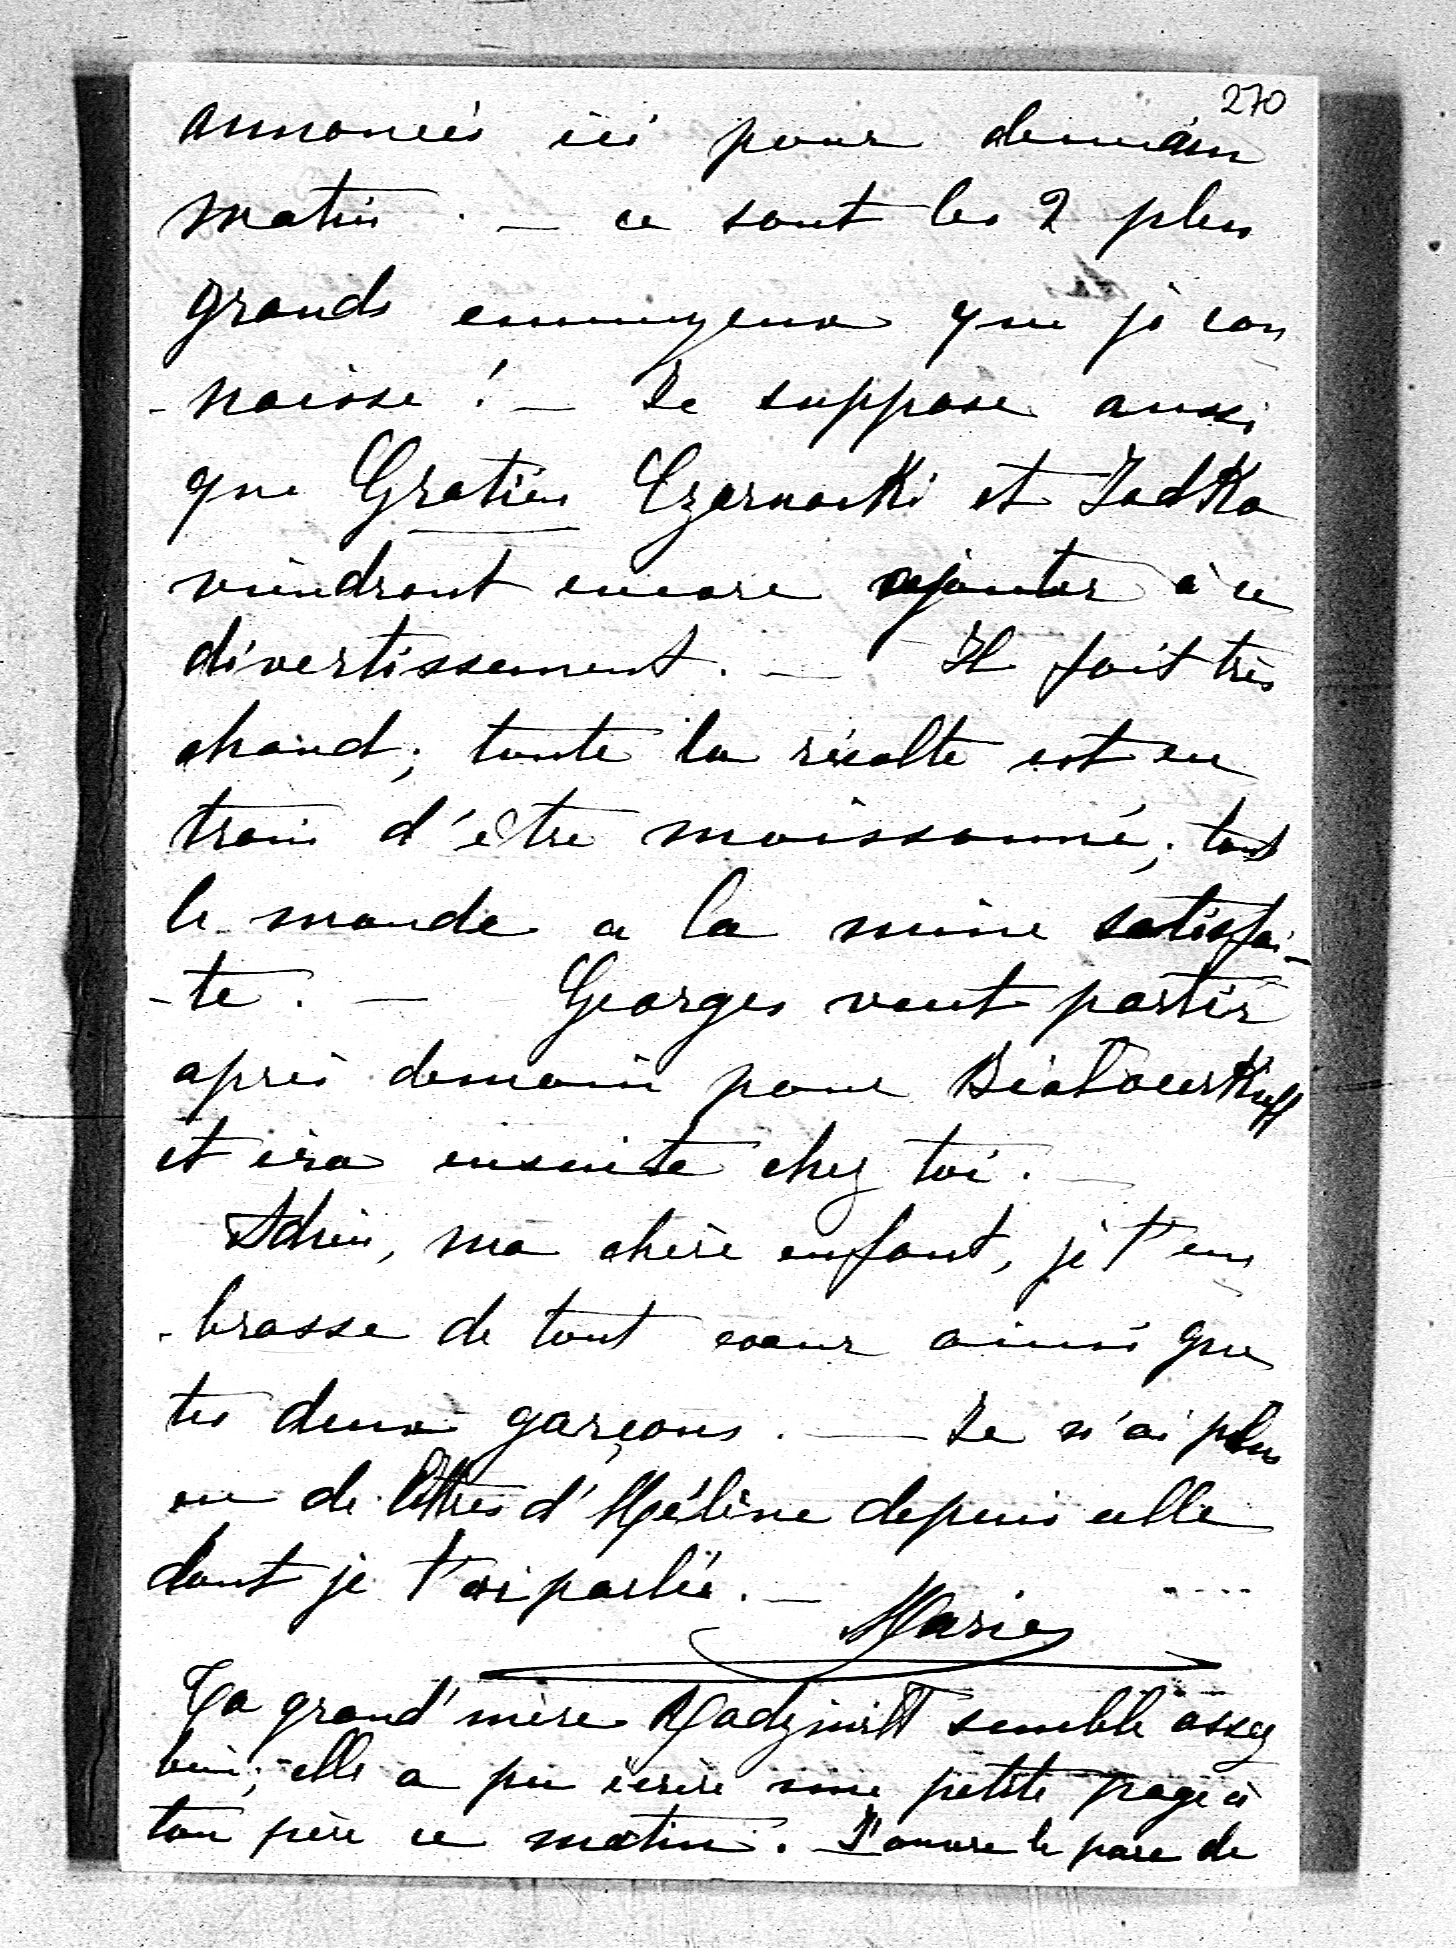 270
annoncés ici pour demain
matin. — ce sont les 2 plus
grands ennuyeux que je con
-naisse! — Je suppose aussi
que Gratien Czarnecki et Jadka
viendront encore ajouter à ce
divertissement. — Il fait très
chaud; toute la récolte est en
train d'être moissonné; tout
le monde a la mine satisfai-
-te. — Georges veut partir
après demain pour
et ira ensuite chez toi. —
Adieu, ma chère enfant, je t'em
-brasse de tout coeur ainsi que
tes deux garçons. — Je n'ai plus
eu de lettres d'Hélène depuis celle
dont je t'ai parlée. —
Marie
Ta grand'mère Radziwiłł semble assez
bien; elle a pu écrire une petite page à
ton père ce matin. J'ouvre le parc de